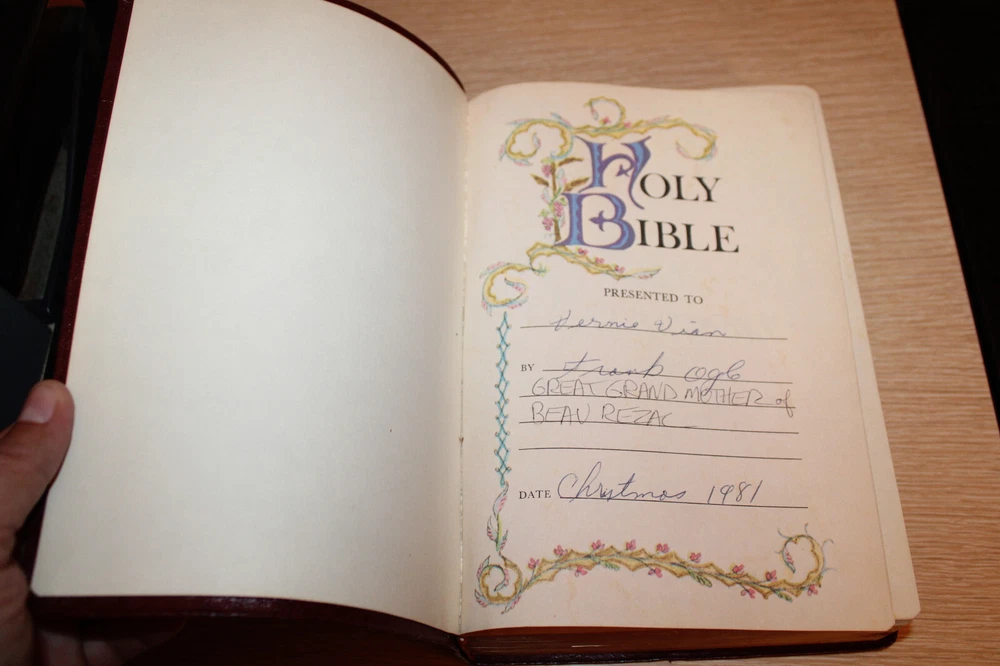 HOLY
BIBLE
PRESENTED TO
Vernie Vian
BY Frank Ogle
GREAT GRAND MOTHER of
BEAU REZAC
DATE Christmas 1981